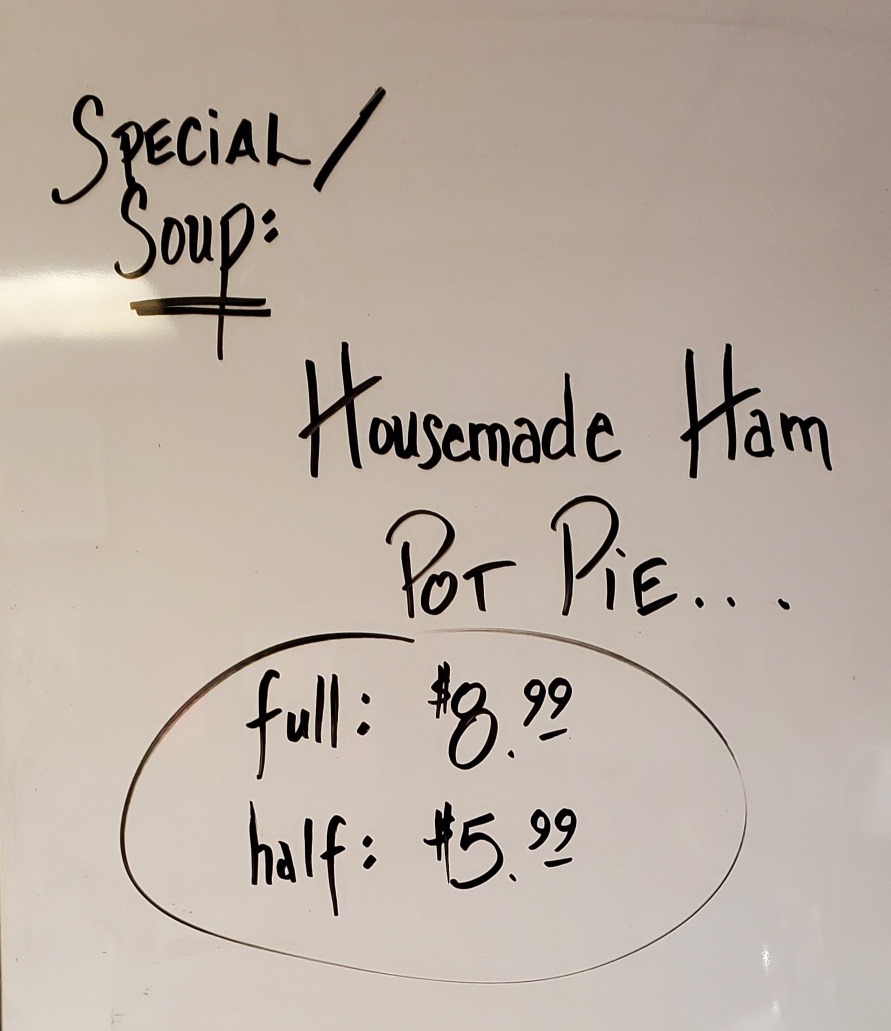 SPECiAL/
Soup:
Housemade Ham
POT PiE...
full: $8.99
half: $5.99